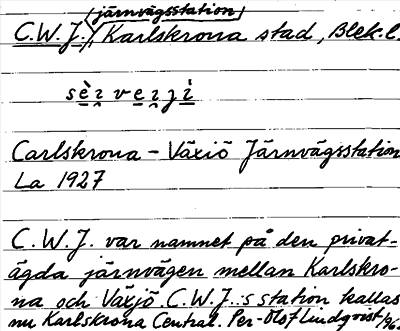 järnvägsstation
C.W.J., Karlskrona stad, Blek.l.
Carlskrona - Växiö Järnvägsstation
La 1927
C.W.J. var namnet på den privat-
ägda järnvägen mellan Karlskro-
na och Växjö. C.W.J.:s station kallas
nu Karlskrona Central. Per-Olof Lindqvist